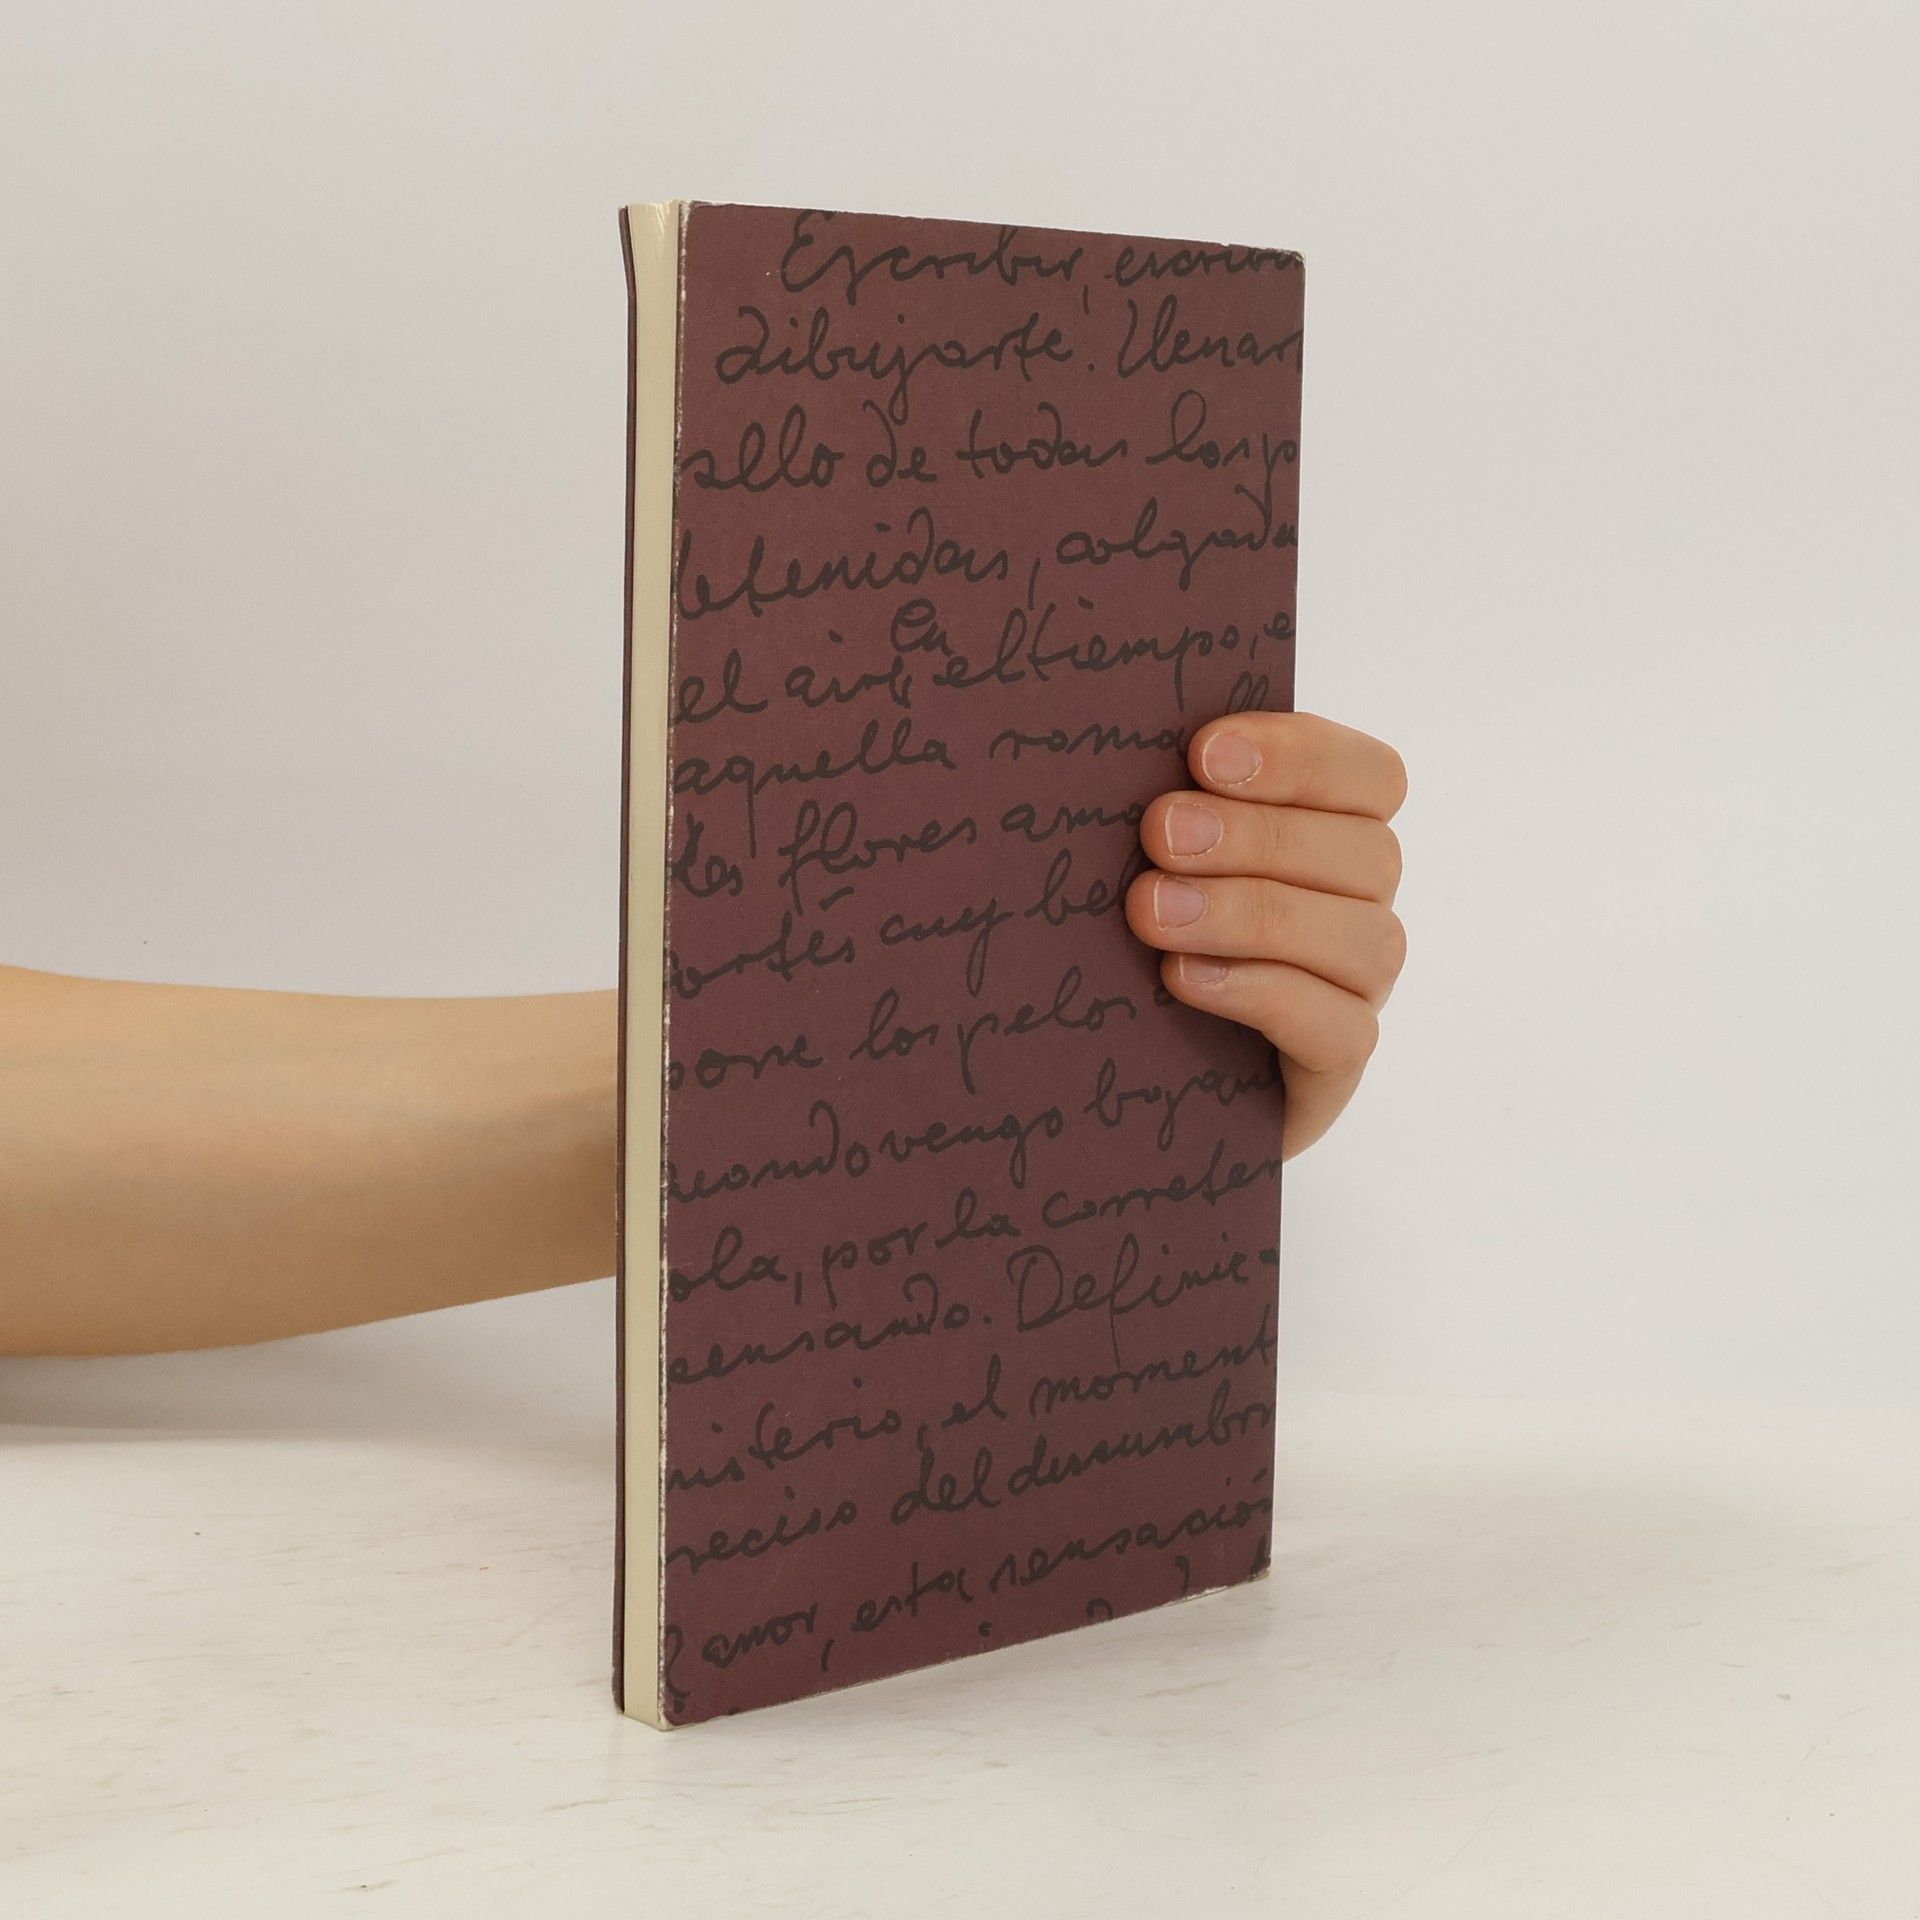 Escribir, escribir
dibujarte. Llenar
sello de todas las p
detenidas, colgada
en
el aire, el tiempo, e
aquella roma
las flores amo
cortés cuy bel
pone los pelos
cuando vengo
ola, por la carreter
pensando. Definir
misterio, el moment
preciso del deslumbr
amor, esta sensación